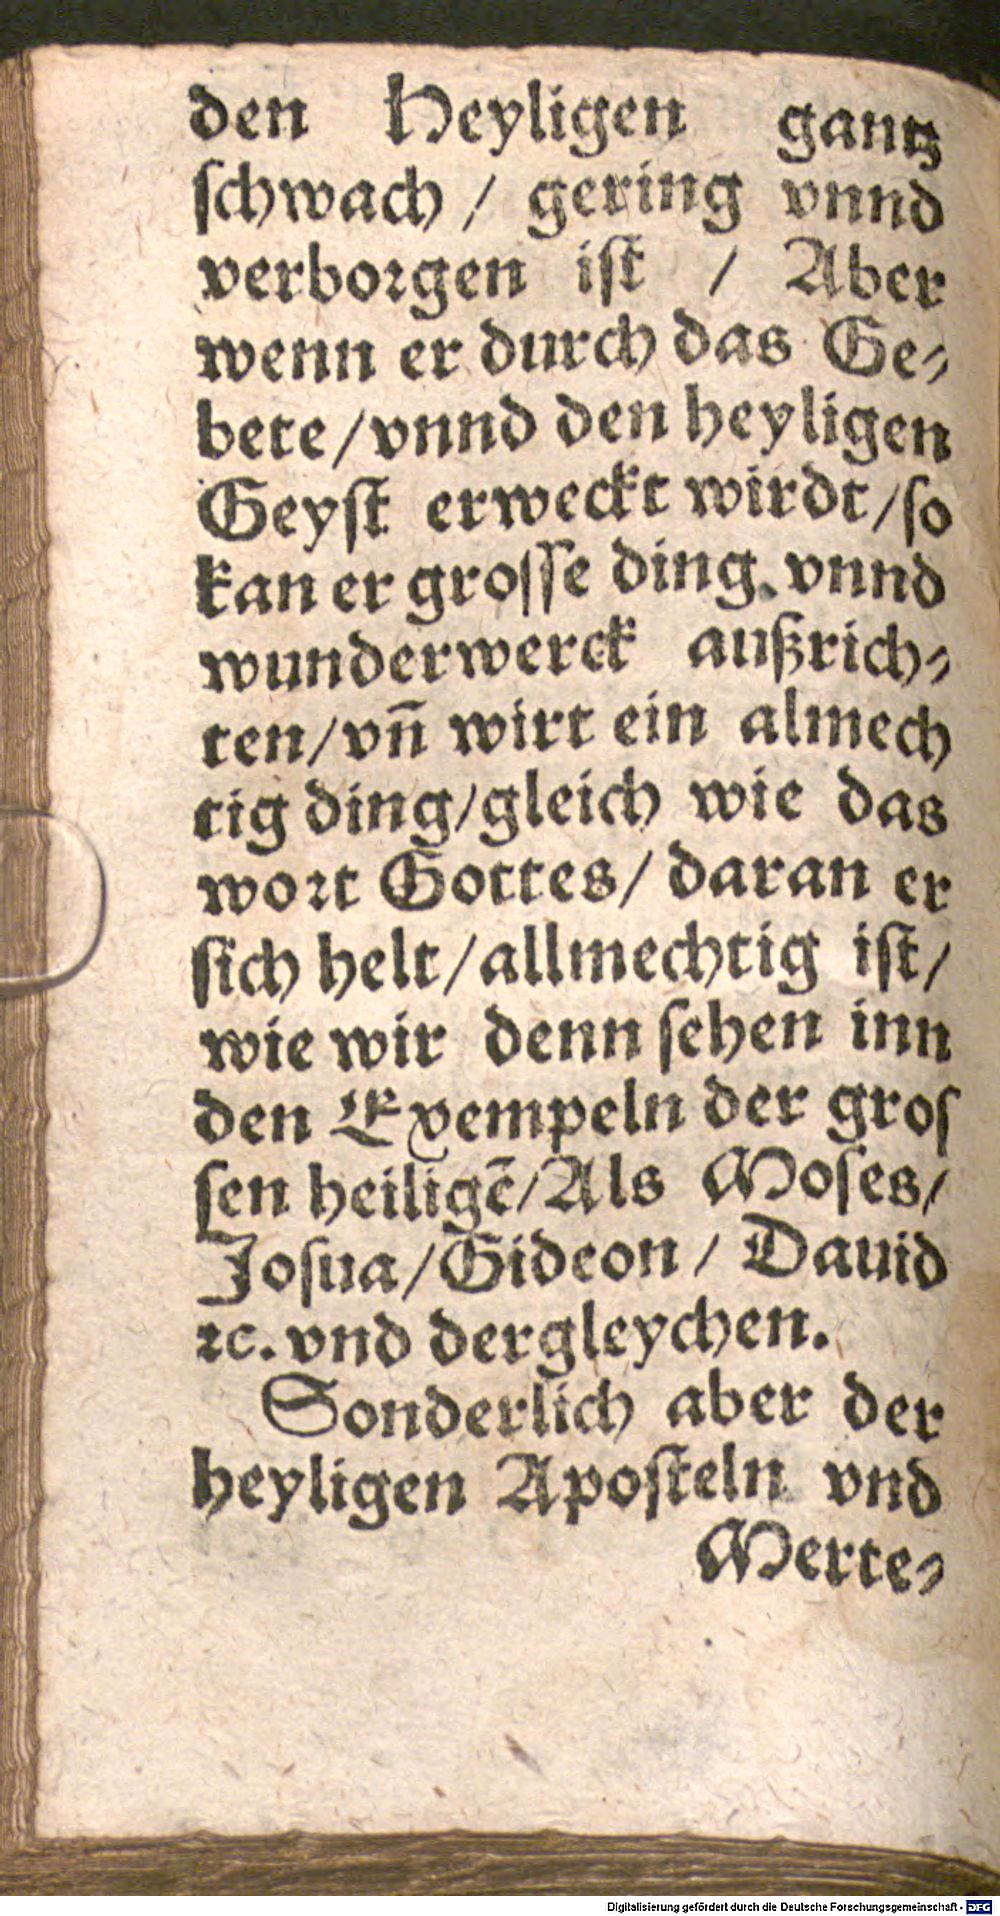 den Heyligen gantz
ſchwach / gering vnnd
verboꝛgen iſt / Aber
wenn er durch das Ge⸗
bete/vnnd den heyligen
Geyſt erweckt wirdt/ſo
kan er groſſe ding. vnnd
wunderwerck außrich⸗
ten/vn̄ wirt ein almech
tig ding/gleich wie das
woꝛt Gottes/ daran er
ſich helt/allmechtig iſt/
wie wir denn ſehen inn
den Exempeln der groſ
ſen heiligē/Als Moſes/
Joſua/Gideon/ Dauid
ꝛc. vnd dergleychen.
Sonderlich aber der
heyligen Apoſteln vnd
Merte⸗
Digitalisierung gefördert durch die Deutsche Forschungsgemeinschaft - DFG